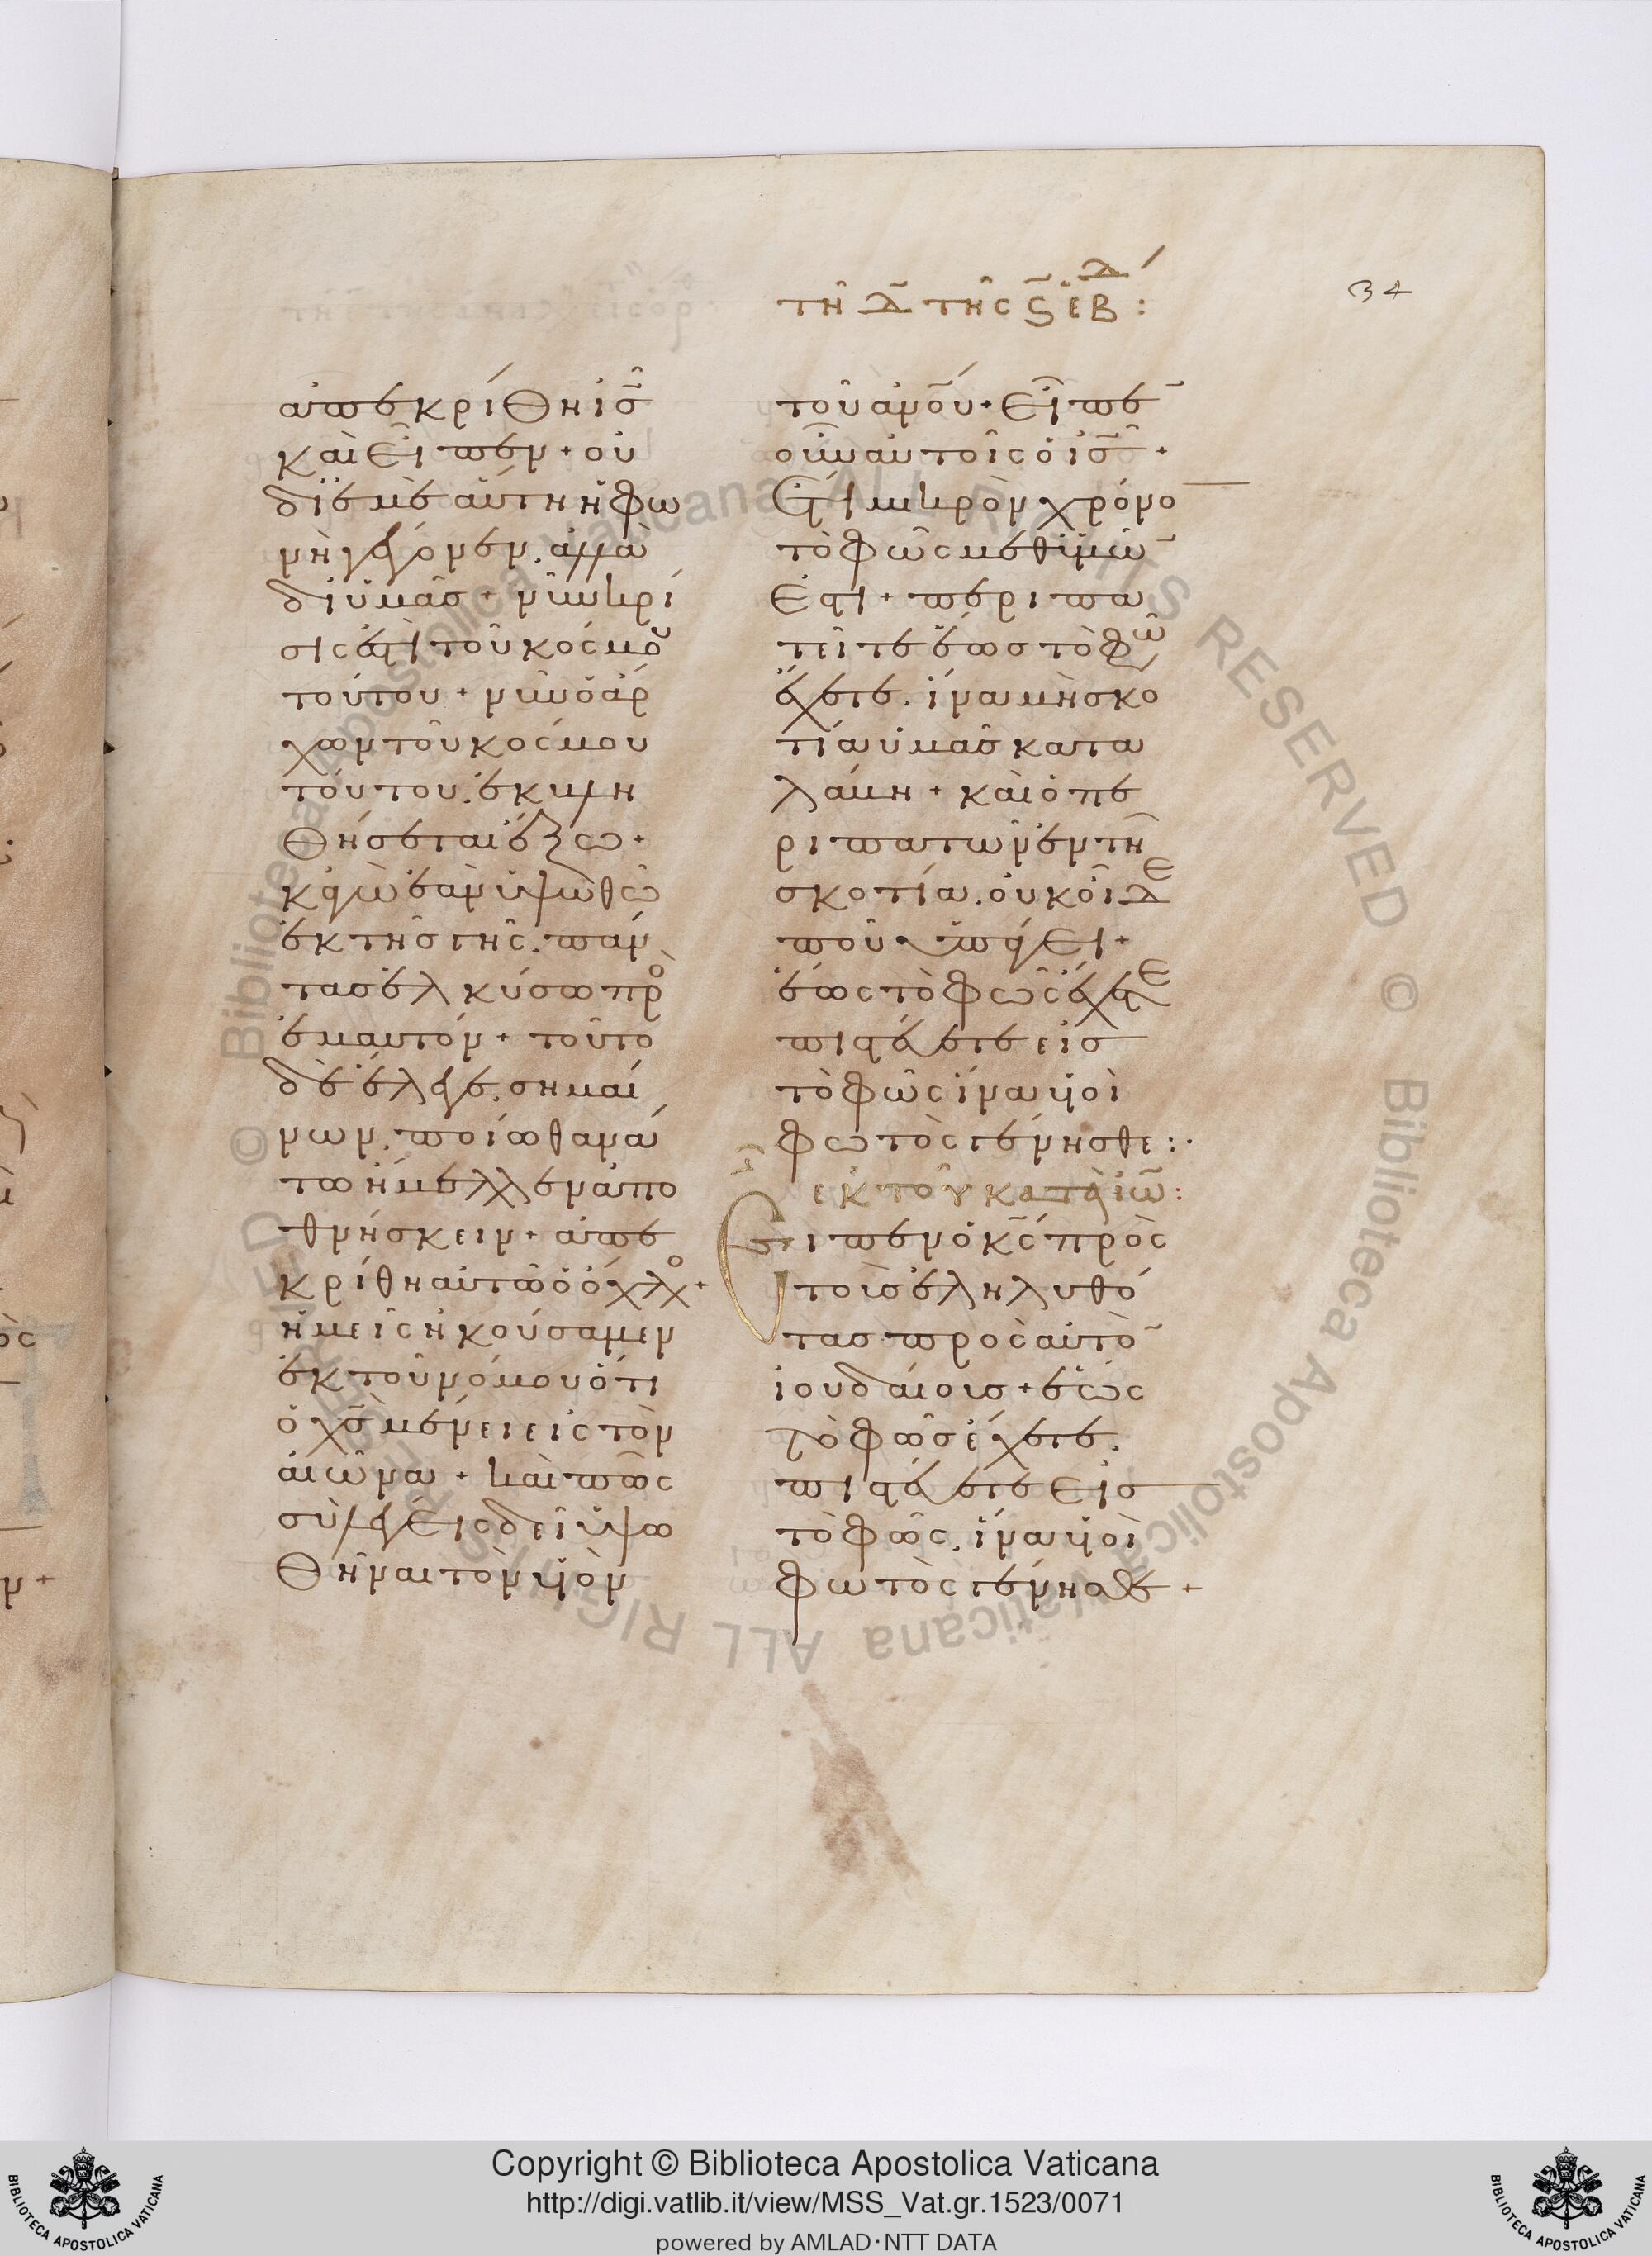 τῆ δ̄ τῆς ϛ̄ ἑβδ́ :
34
ἀπεκρίθη ὁ ις̄
καὶ εἶπεν + οὐ
δι' ἐμὲ αὕτη ἡ φω
νὴ γέγονεν. ἀλλὰ
δι' ὑμᾶσ + νῦν κρί
σις ἐστὶ τοῦ κόσμου
τούτου + νῦν ὁ ἄρ
χων τοῦ κόσμου
τούτου. ἐκβλη
θήσεται ἔξω +
κἀγὼ ἐὰν ὑψωθῶ
ἐκ τῆσ γῆς. πάν
τασ ἑλκύσω πρὸ
ἐμαυτόν + τοῦτο
δὲ ἔλεγε. σημαί
νων. ποίω θανά
τω ἤμελλεν ἀπο
θνήσκειν + ἀπε
κρίθη αὐτῶ ὁ ὄχλο +
ἡμεῖς ἠκούσαμεν
ἐκ τοῦ νόμου ὅτι
ὁ χσ̄ μένει εἰς τὸν
αἰῶνα + καὶ πῶς
σὺ λέγεις δεῖ ὑψω
θῆναι τὸν υἱὸν
τοῦ ἀνο̄ύ + εἶπε
οὖν αὐτοῖς ὁ ισ̄ +
ἔτι μικρὸν χρόνο
τὸ φῶς μεθ' ὑμῶ
ἐστι + περιπα
τεῖτε ἕωσ τὸ φῶ
ἔχετε. ἵνα μὴ σκο
τία ὑμᾶσ κατα
λάβη + καὶ ὁ πε
ριπατῶν ἐν τῆ
σκοτία. οὐκ οἶδε
ποῦ ὑπάγει +
ἕως τὸ φῶς ἔχετε
πιστεύετε εἰσ
τὸ φῶς ἵνα υἱοὶ
φωτὸς γένησθε : ·
ἐκ τοῦ κατὰ ἰω̄ :
Εἶπεν ὁ κς̄ πρὸς
τοὺσ ἐληλυθό
τασ πρὸς αὐτὸ
ἰουδαίουσ + ἕως
τὸ φῶσ ἔχετε.
πιστεύετε εἰσ
τὸ φῶς. ἵνα υἱοὶ
φωτὸς γένησθε +
Copyright © Biblioteca Apostolica Vaticana
http://digi.vatlib.it/view/MSS_Vat.gr.1523/0071
powered by AMLAD·NTT DATA
BIBLIOTECA APOSTOLICA VATICANA
BIBLIOTECA APOSTOLICA VATICANA
© Biblioteca Apostolica Vaticana ALL RIGHTS RESERVED © Biblioteca Apostolica Vaticana ALL RIGHTS RESERVED